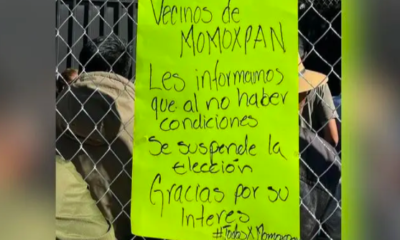 Vecinos de
MOMOXPAN
Les informamos
que al no haber
condiciones
Se suspende la
elección
Gracias por su
Interes
#TodosXMomoxpan